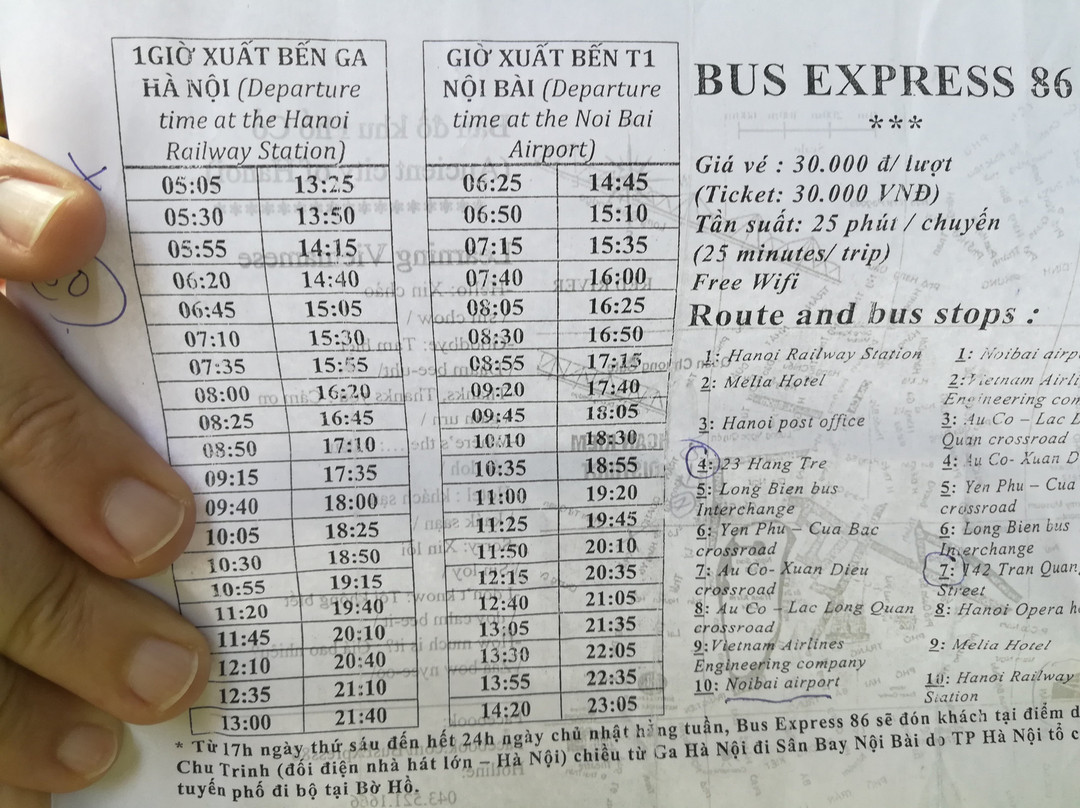 1GIỜ XUẤT BẾN GA
HÀ NỘI (Departure
time at the Hanoi
Railway Station)
05:05 13:25
05:30 13:50
05:55 14:15
06:20 14:40
06:45 15:05
07:10 15:30
07:35 15:55
08:00 16:20
08:25 16:45
08:50 17:10
09:15 17:35
09:40 18:00
10:05 18:25
10:30 18:50
10:55 19:15
11:20 19:40
11:45 20:10
12:10 20:40
12:35 21:10
13:00 21:40
GIỜ XUẤT BẾN T1
NỘI BÀI (Departure
time at the Noi Bai
Airport)
06:25 14:45
06:50 15:10
07:15 15:35
07:40 16:00
08:05 16:25
08:30 16:50
08:55 17:15
09:20 17:40
09:45 18:05
10:10 18:30
10:35 18:55
11:00 19:20
11:25 19:45
11:50 20:10
12:15 20:35
12:40 21:05
13:05 21:35
13:30 22:05
13:55 22:35
14:20 23:05
BUS EXPRESS 86
***
Giá vé : 30.000 đ/ lượt
(Ticket: 30.000 VNĐ)
Tần suất: 25 phút / chuyến
(25 minutes/ trip)
Free Wifi
Route and bus stops :
1: Hanoi Railway Station
2: Melia Hotel
3: Hanoi post office
4: 23 Hang Tre
5: Long Bien bus
Interchange
6: Yen Phu – Cua Bac
crossroad
7: Au Co- Xuan Dieu
crossroad
8: Au Co – Lac Long Quan
crossroad
9:Vietnam Airlines
Engineering company
10: Noibai airport
1: Noibai airp
2:Vietnam Airli
Engineering com
3: Au Co – Lac
Quan crossroad
4: Au Co- Xuan D
5: Yen Phu – Cua
crossroad
6: Long Bien bus
Interchange
7: 142 Tran Quan
Street
8: Hanoi Opera h
9: Melia Hotel
10: Hanoi Railway
Station
* Từ 17h ngày thứ sáu đến hết 24h ngày chủ nhật hằng tuần, Bus Express 86 sẽ đón khách tại điểm d
Chu Trinh (đối diện nhà hát lớn – Hà Nội) chiều từ Ga Hà Nội đi Sân Bay Nội Bài do TP Hà Nội tổ c
tuyến phố đi bộ tại Bờ Hồ.